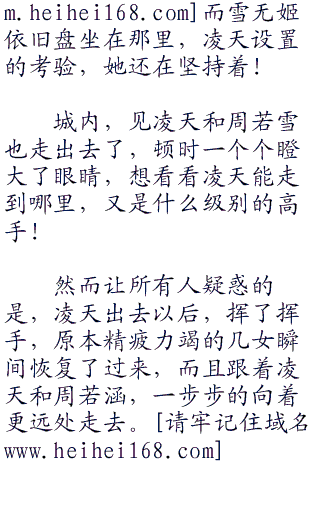 m.heihei168.com]而雪无姬
依旧盘坐在那里，凌天设置
的考验，她还在坚持着！
城内，见凌天和周若雪
也走出去了，顿时一个个瞪
大了眼睛，想看看凌天能走
到哪里，又是什么级别的高
手！
然而让所有人疑惑的
是，凌天出去以后，挥了挥
手，原本精疲力竭的几女瞬
间恢复了过来，而且跟着凌
天和周若涵，一步步的向着
更远处走去。[请牢记住域名
www.heihei168.com]